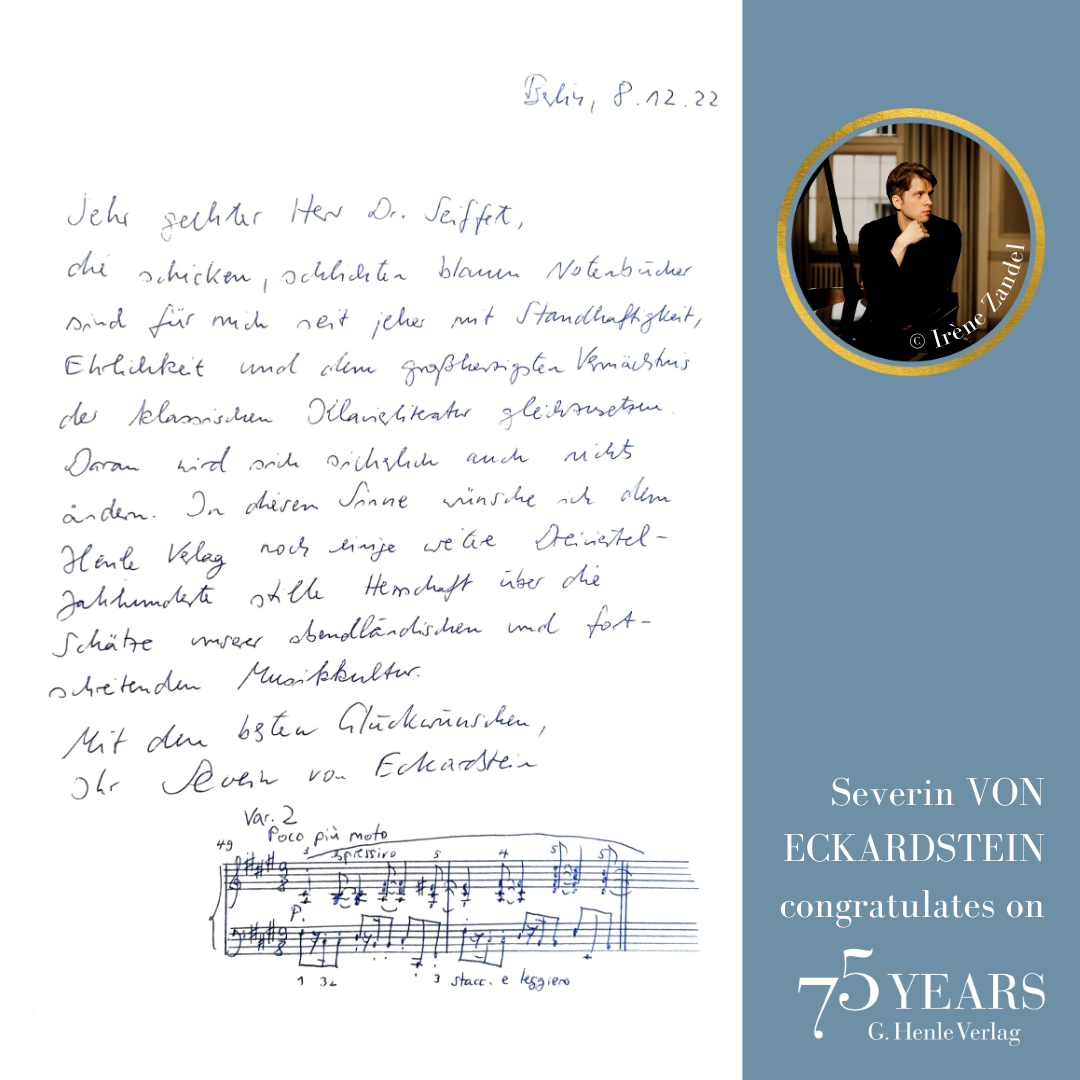 Berlin, 8.12.22
Sehr geehrter Herr Dr. Seiffert,
die schicken, schlichten blauen Notenbücher
sind für mich seit jeher mit Standhaftigkeit,
Ehrlichkeit und dem großherzigsten Vermächtnis
der klassischen Klavierliteratur gleichzusetzen.
Daran wird sich sicherlich auch nichts
ändern. In diesem Sinne wünsche ich dem
Henle Verlag noch einige weitere Dreiviertel-
Jahrhunderte stille Herrschaft über die
Schätze unserer abendländischen und fort-
schreitenden Musikkultur.
Mit den besten Glückwünschen,
Ihr Severin von Eckardstein
Var. 2
Poco più moto
49
espressivo
5 4 5 5
9 8
P.
9 8
1 3 3 stacc. e leggiero
© Irène Zandel
Severin VON
ECKARDSTEIN
congratulates on
75 YEARS
G. Henle Verlag